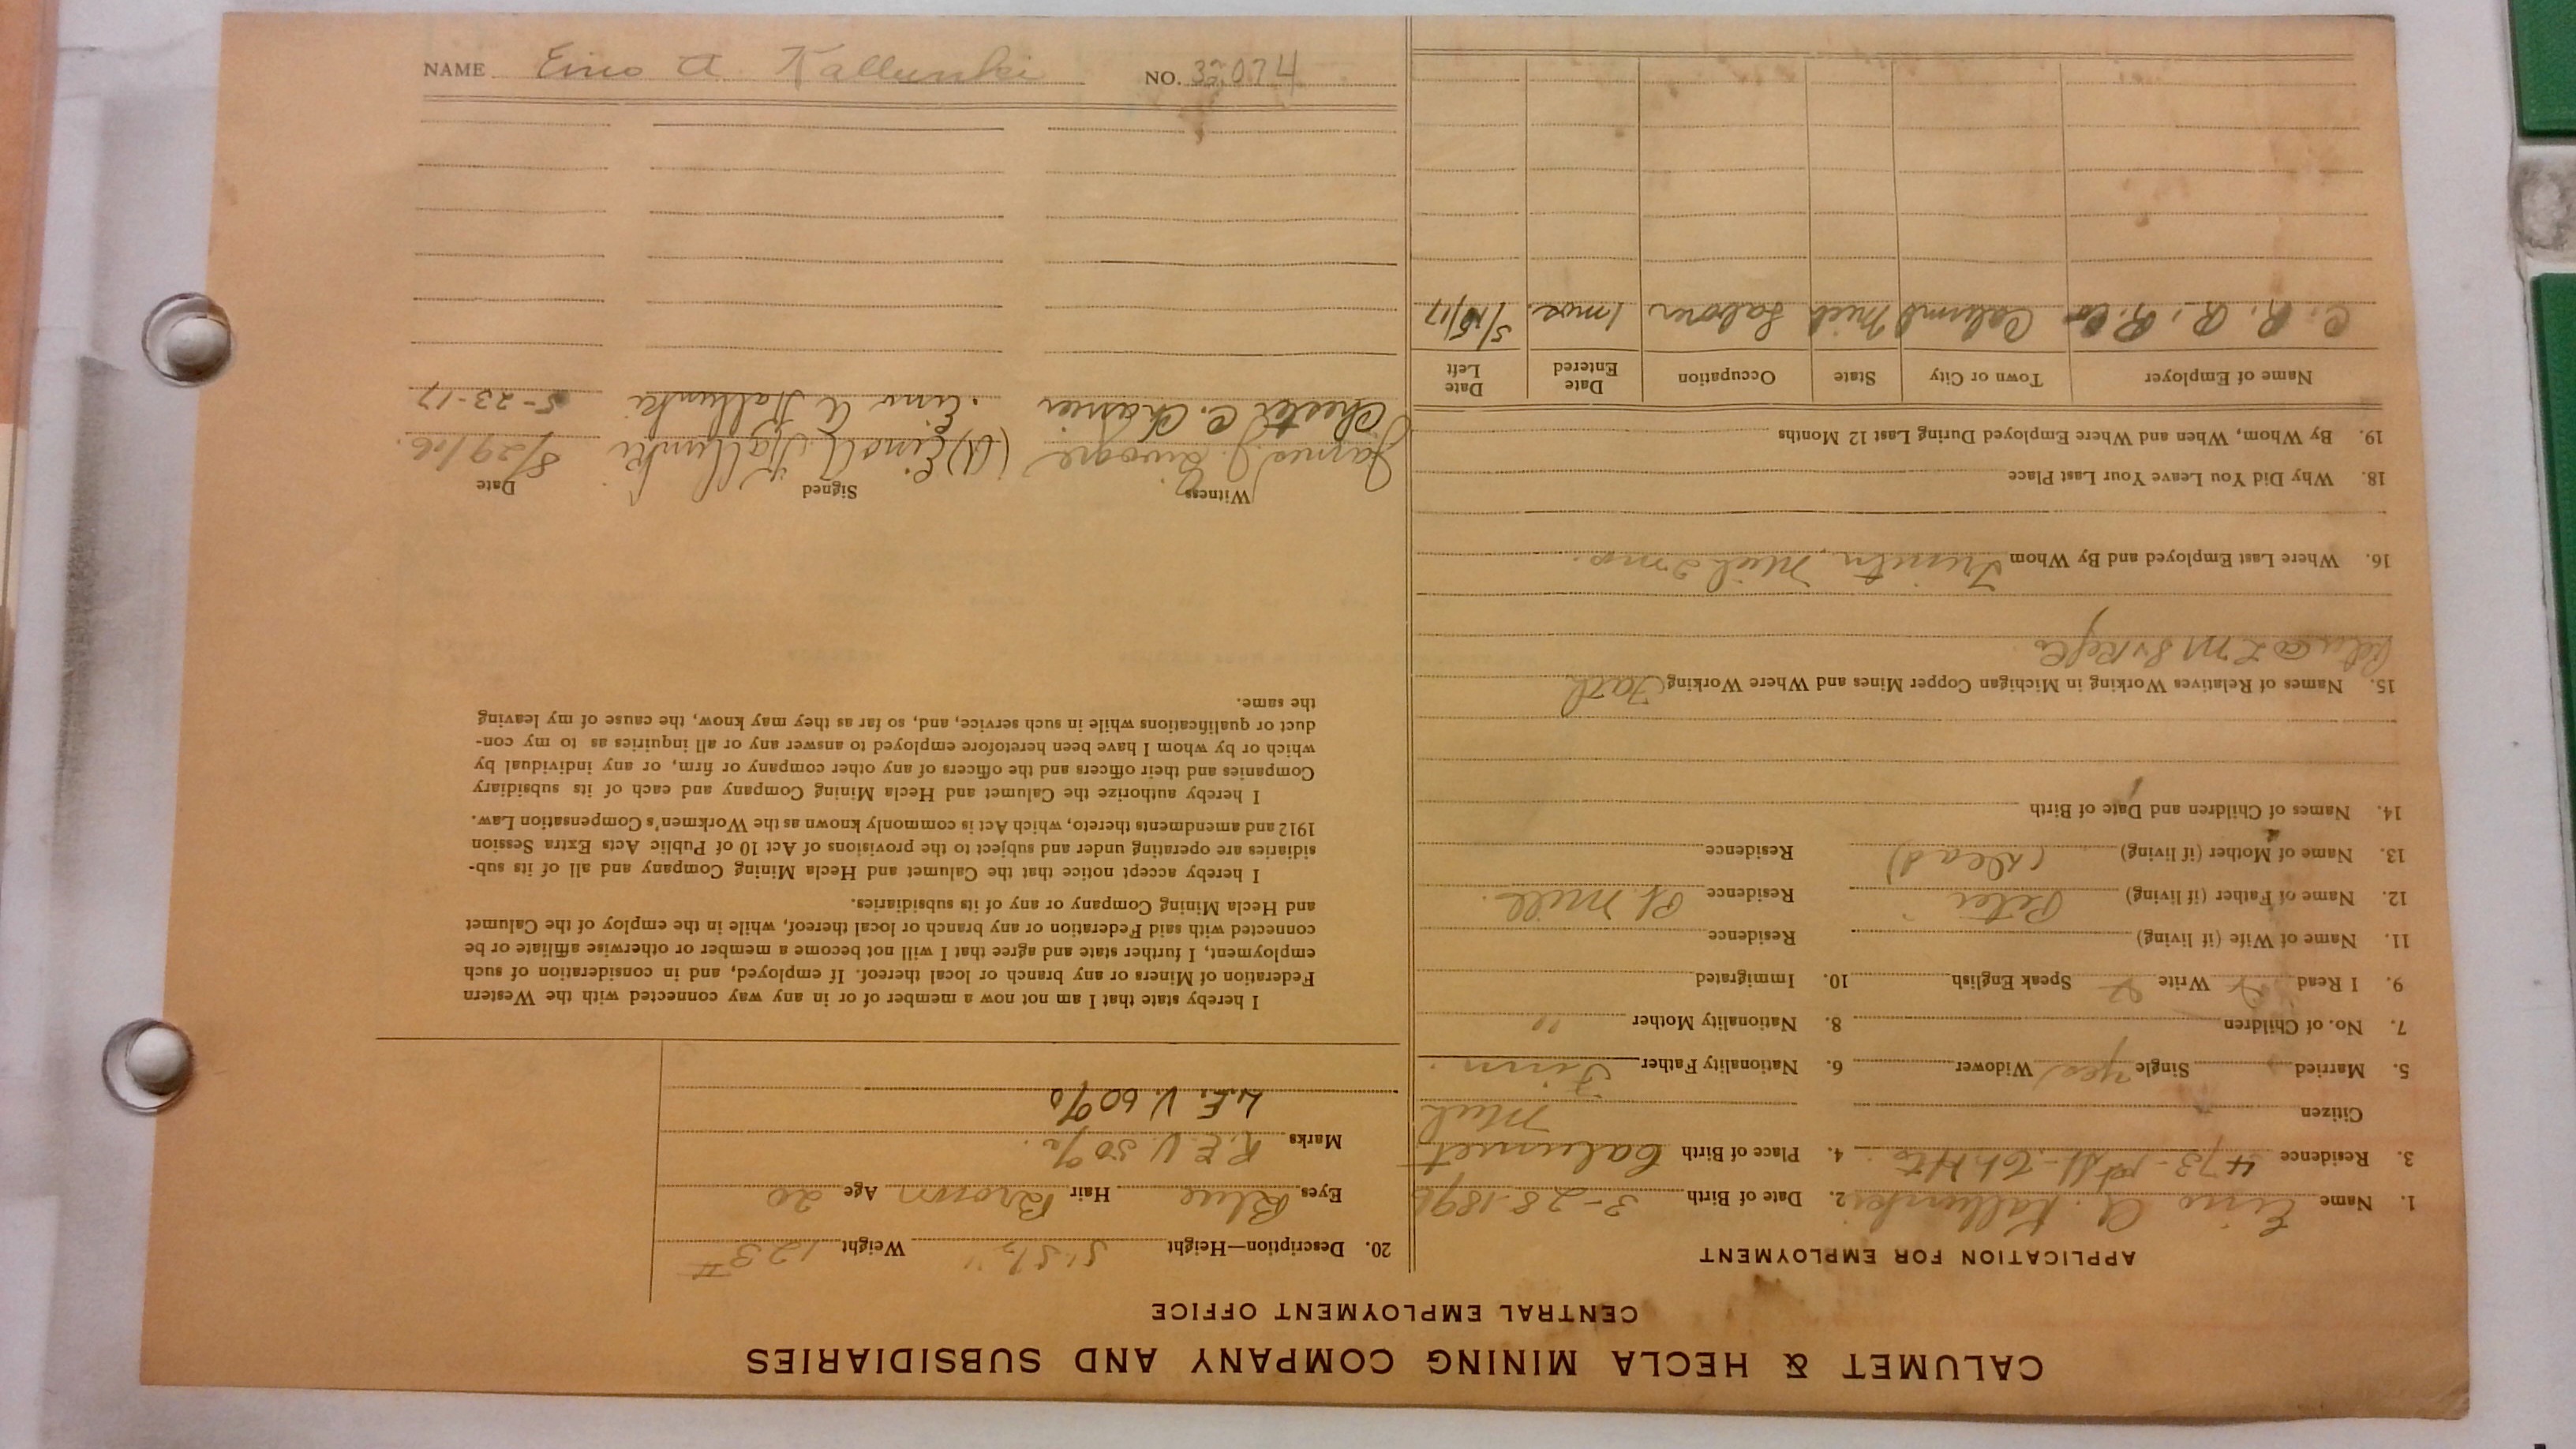 CALUMET & HECLA MINING COMPANY AND SUBSIDIARIES
CENTRAL EMPLOYMENT OFFICE
APPLICATION FOR EMPLOYMENT
1. Name Eino A. Kallunki 2. Date of Birth 3-28-1896
3. Residence 473- 4. Place of Birth Calumet
Citizen Mich
5. Married Single yes Widower 6. Nationality Father Finn.
7. No. of Children 8. Nationality Mother "
9. I Read Write Speak English 10. Immigrated
11. Name of Wife (if living) Residence
12. Name of Father (if living) Peter Residence Pt Mills.
13. Name of Mother (if living) (Dead) Residence
14. Names of Children and Date of Birth
15. Names of Relatives Working in Michigan Copper Mines and Where Working Fath
16. Where Last Employed and By Whom Mich 2 mos.
18. Why Did You Leave Your Last Place
19. By Whom, When and Where Employed During Last 12 Months
Name of Employer Town or City State Occupation Date Entered Date Left
C. R. R. Co Calumet Mich Laborer 1 mos. 5/15/17
20. Description—Height 5'5½" Weight 123 #
Eyes Blue Hair Brown Age 20
Marks R.E.V. 50%.
L.E.V. 60%
I hereby state that I am not now a member of or in any way connected with the Western
Federation of Miners or any branch or local thereof. If employed, and in consideration of such
employment, I further state and agree that I will not become a member or otherwise affiliate or be
connected with said Federation or any branch or local thereof, while in the employ of the Calumet
and Hecla Mining Company or any of its subsidiaries.
I hereby accept notice that the Calumet and Hecla Mining Company and all of its sub-
sidiaries are operating under and subject to the provisions of Act 10 of Public Acts Extra Session
1912 and amendments thereto, which Act is commonly known as the Workmen's Compensation Law.
I hereby authorize the Calumet and Hecla Mining Company and each of its subsidiary
Companies and their officers and the officers of any other company or firm, or any individual by
which or by whom I have been heretofore employed to answer any or all inquiries as to my con-
duct or qualifications while in such service, and, so far as they may know, the cause of my leaving
the same.
Witness Signed Date
James J. Eino A Kallunki 8/29/16.
Chester C. Eino A Kallunki 5-23-17
NAME Eino A Kallunki NO. 32074